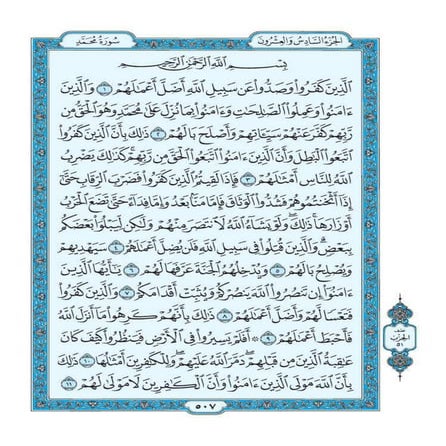 سُورَةُ مُحَمَّد
الجُزْءُ السَّادِسُ وَالعِشْرُونَ
بِسْمِ اللَّهِ الرَّحْمَٰنِ الرَّحِيمِ
الَّذِينَ كَفَرُوا وَصَدُّوا عَن سَبِيلِ اللَّهِ أَضَلَّ أَعْمَالَهُمْ ١ وَالَّذِينَ
ءَامَنُوا وَعَمِلُوا الصَّالِحَاتِ وَءَامَنُوا بِمَا نُزِّلَ عَلَىٰ مُحَمَّدٍ وَهُوَ الْحَقُّ مِن
رَّبِّهِمْ كَفَّرَ عَنْهُمْ سَيِّئَاتِهِمْ وَأَصْلَحَ بَالَهُمْ ٢ ذَٰلِكَ بِأَنَّ الَّذِينَ كَفَرُوا
اتَّبَعُوا الْبَاطِلَ وَأَنَّ الَّذِينَ ءَامَنُوا اتَّبَعُوا الْحَقَّ مِن رَّبِّهِمْ كَذَٰلِكَ يَضْرِبُ
اللَّهُ لِلنَّاسِ أَمْثَالَهُمْ ٣ فَإِذَا لَقِيتُمُ الَّذِينَ كَفَرُوا فَضَرْبَ الرِّقَابِ حَتَّىٰ
إِذَا أَثْخَنتُمُوهُمْ فَشُدُّوا الْوَثَاقَ فَإِمَّا مَنًّا بَعْدُ وَإِمَّا فِدَاءً حَتَّىٰ تَضَعَ الْحَرْبُ
أَوْزَارَهَا ذَٰلِكَ وَلَوْ يَشَاءُ اللَّهُ لَانتَصَرَ مِنْهُمْ وَلَٰكِن لِّيَبْلُوَا بَعْضَكُم
بِبَعْضٍ وَالَّذِينَ قُتِلُوا فِي سَبِيلِ اللَّهِ فَلَن يُضِلَّ أَعْمَالَهُمْ ٤ سَيَهْدِيهِمْ
وَيُصْلِحُ بَالَهُمْ ٥ وَيُدْخِلُهُمُ الْجَنَّةَ عَرَّفَهَا لَهُمْ ٦ يَٰأَيُّهَا الَّذِينَ
ءَامَنُوا إِن تَنصُرُوا اللَّهَ يَنصُرْكُمْ وَيُثَبِّتْ أَقْدَامَكُمْ ٧ وَالَّذِينَ كَفَرُوا
فَتَعْسًا لَّهُمْ وَأَضَلَّ أَعْمَالَهُمْ ٨ ذَٰلِكَ بِأَنَّهُمْ كَرِهُوا مَا أَنزَلَ اللَّهُ
فَأَحْبَطَ أَعْمَالَهُمْ ٩ ۞ أَفَلَمْ يَسِيرُوا فِي الْأَرْضِ فَيَنظُرُوا كَيْفَ كَانَ
عَاقِبَةُ الَّذِينَ مِن قَبْلِهِمْ دَمَّرَ اللَّهُ عَلَيْهِمْ وَلِلْكَافِرِينَ أَمْثَالُهَا ١٠ ذَٰلِكَ
بِأَنَّ اللَّهَ مَوْلَى الَّذِينَ ءَامَنُوا وَأَنَّ الْكَافِرِينَ لَا مَوْلَىٰ لَهُمْ ١١
٥٠٧
الحِزْب
٥١